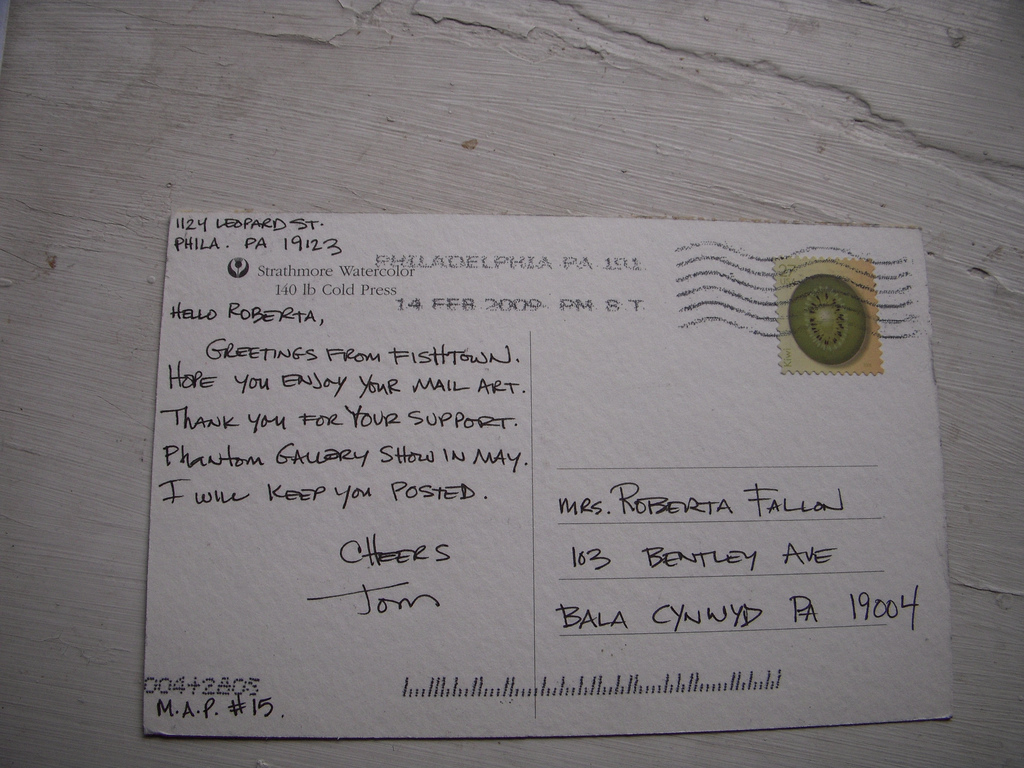 1124 LEOPARD ST.
PHILA. PA 19123
Strathmore Watercolor
140 lb Cold Press
PHILADELPHIA PA 191
14 FEB 2009 PM 8 T
Kiwi
HELLO ROBERTA,
GREETINGS FROM FISHTOWN.
HOPE YOU ENJOY YOUR MAIL ART.
THANK YOU FOR YOUR SUPPORT.
PhANTOM GALLERY SHOW IN MAY.
I WILL KEEP YOU POSTED.
CHEERS
Tom
MRS. ROBERTA FALLON
103 BENTLEY AVE
BALA CYNWYD PA 19004
004+2805
M.A.P. #15.